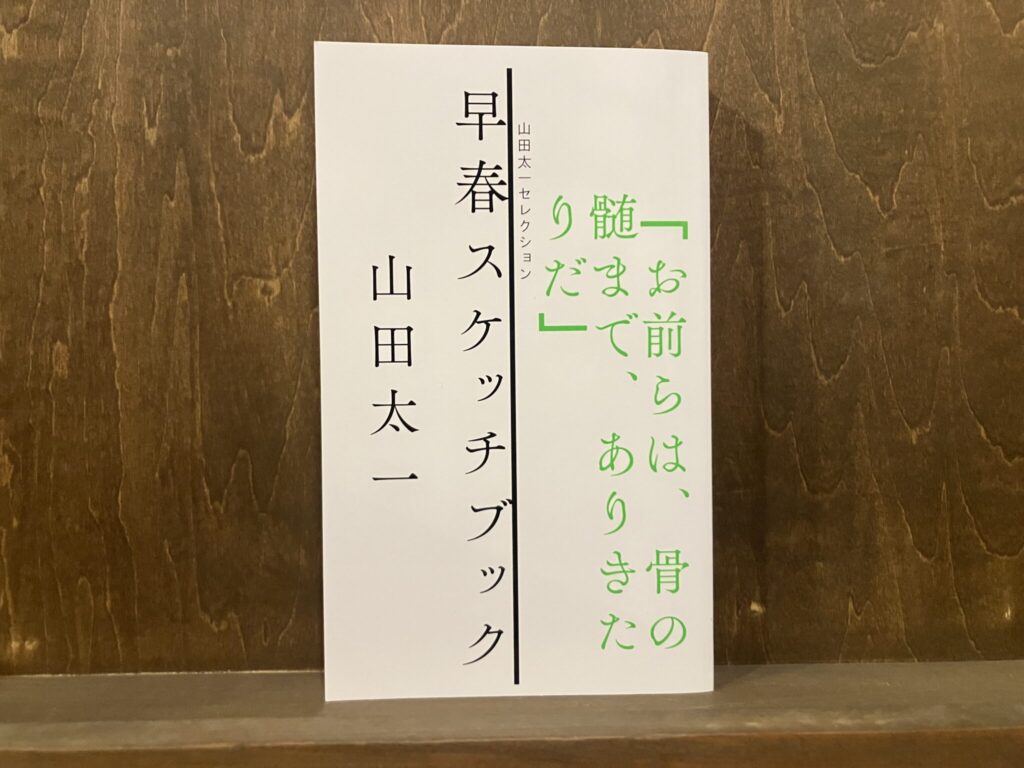 「お前らは、骨の
髄まで、ありきた
りだ」
山田太一セレクション
早春スケッチブック
山田太一